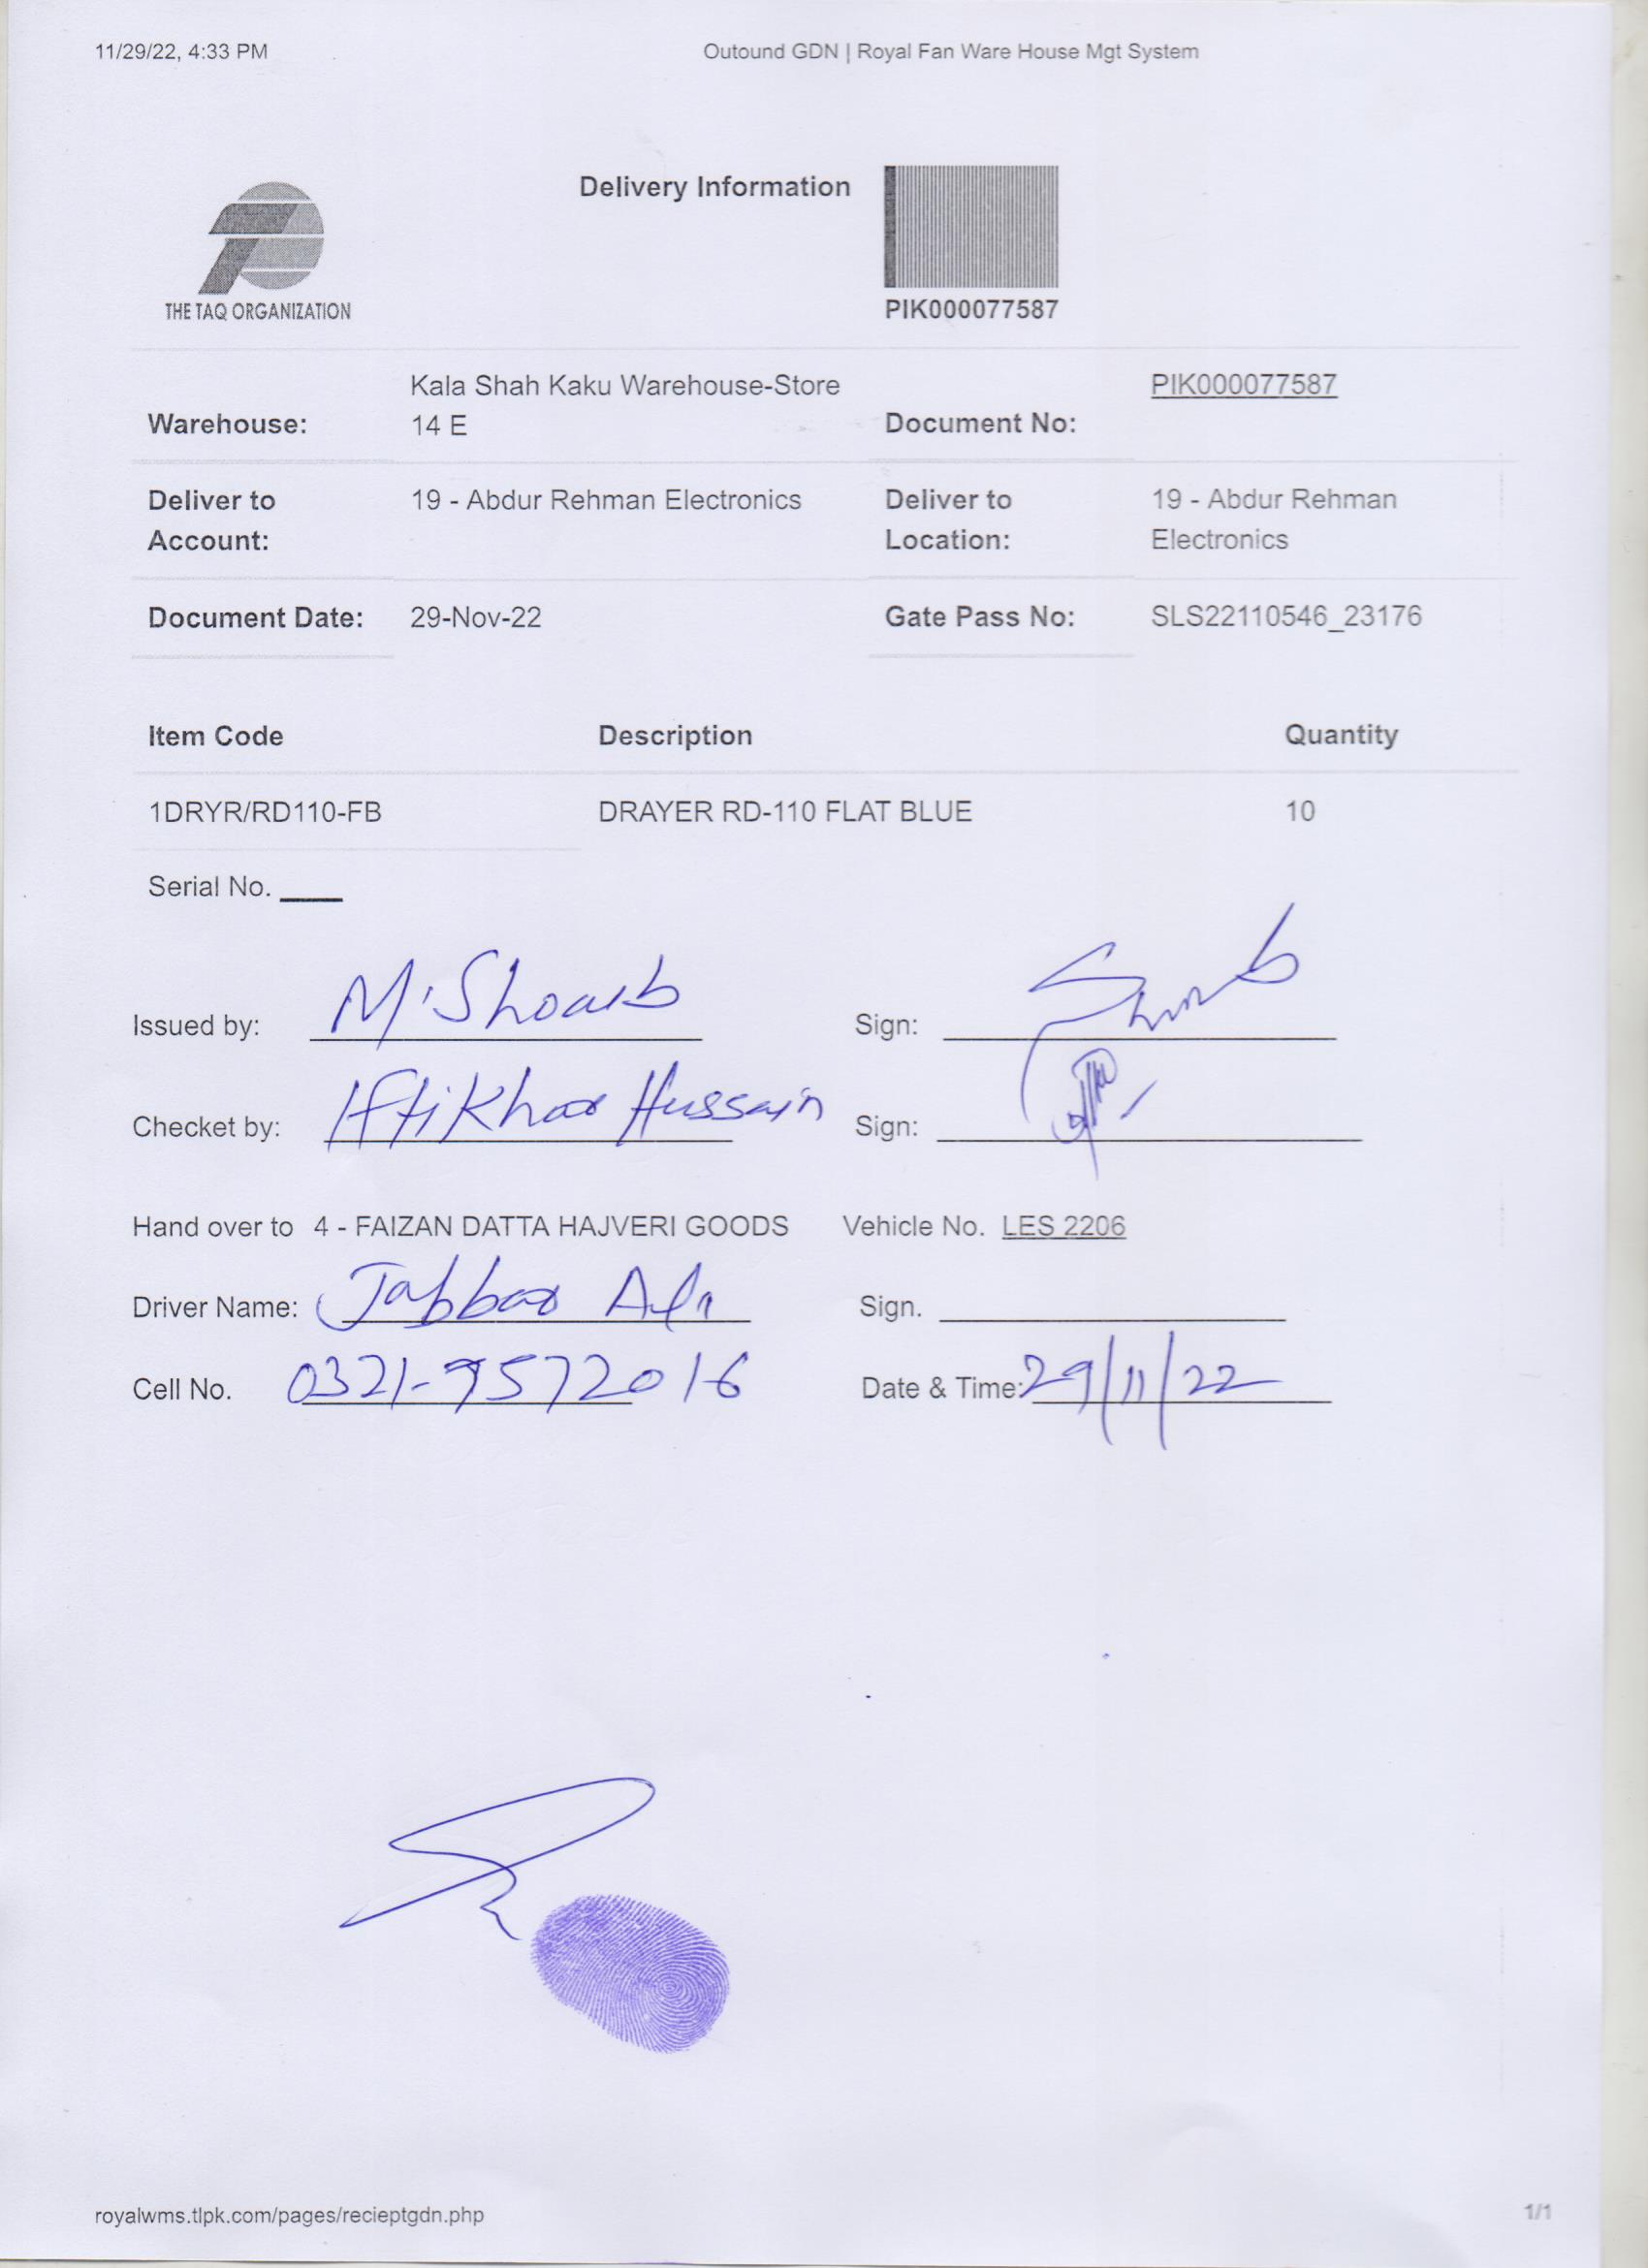 11/29/22, 4:33 PM Outound GDN | Royal Fan Ware House Mgt System
Delivery Information
THE TAQ ORGANIZATION
PIK000077587
Warehouse: Kala Shah Kaku Warehouse-Store 14 E Document No: PIK000077587
Deliver to Account: 19 - Abdur Rehman Electronics Deliver to Location: 19 - Abdur Rehman Electronics
Document Date: 29-Nov-22 Gate Pass No: SLS22110546_23176
Item Code Description Quantity
1DRYR/RD110-FB DRAYER RD-110 FLAT BLUE 10
Serial No.
Issued by: M.Shoaib Sign:
Checket by: Iftikhar Hussain Sign:
Hand over to 4 - FAIZAN DATTA HAJVERI GOODS Vehicle No. LES 2206
Driver Name: Jabbar Ali Sign.
Cell No. 0321-9572016 Date & Time: 29/11/22
royalwms.tlpk.com/pages/recieptgdn.php 1/1